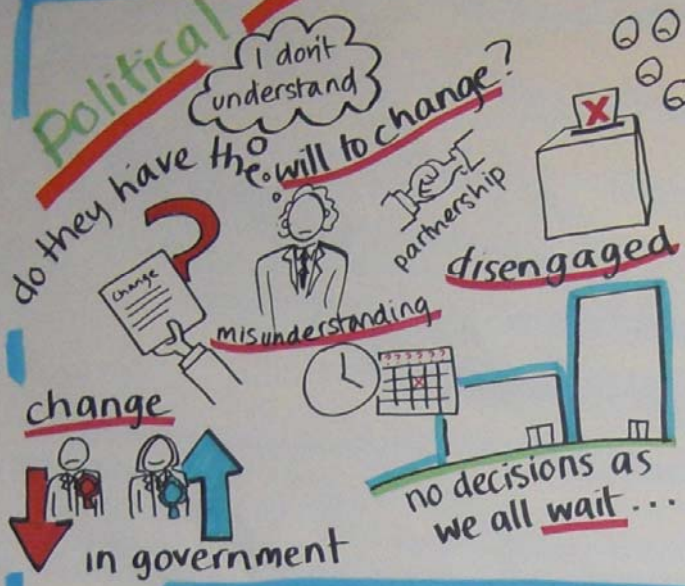 Political
I don't
understand
do they have the will to change?
partnership
disengaged
change
misunderstanding
change
in government
no decisions as
we all wait...